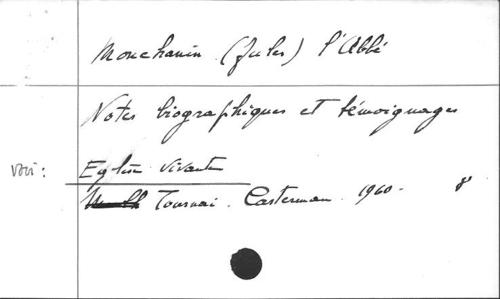 Monchanin (Jules) l'Abbé
Notes biographiques et témoignages
voir: Eglise vivante
Tournai. Casterman. 1960. 8